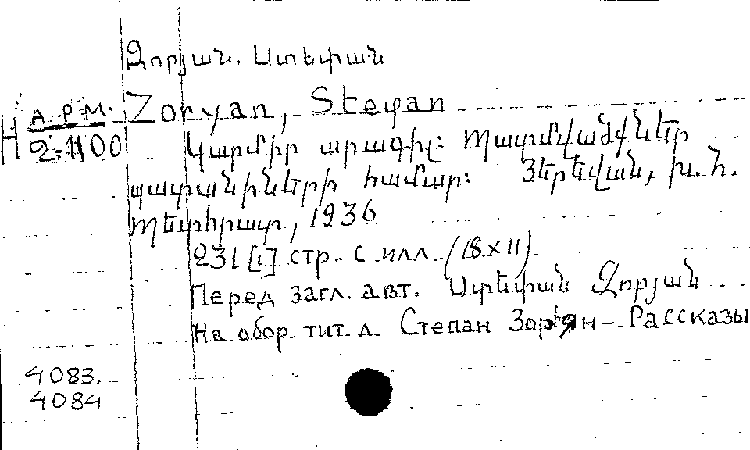 Զորյան, Ստեփան
Zoryan, Stepan
Н АРМ.
2-1100
Կարմիր արագիլ: Պատմվածքներ
պատանիների համար: Յերեվան, խ.հ.
Պետհրատ, 1936
231 [1] стр. с илл. (18 x 11)
Перед загл. авт. Ստեփան Զորյան
На обор. тит. л. Степан Зорьян – Рассказы
4083.
4084